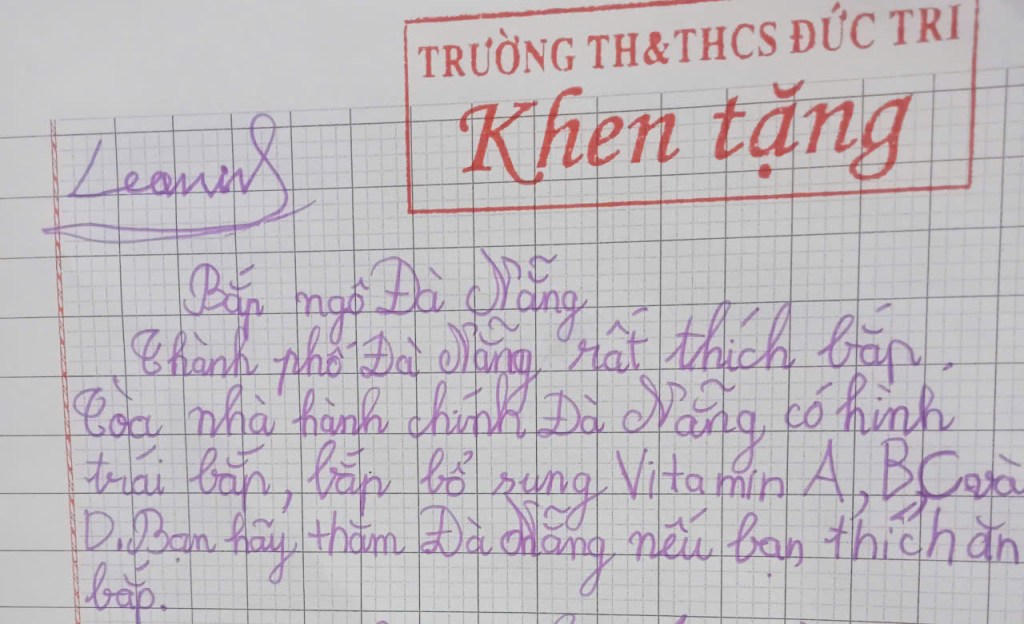 TRƯỜNG TH&THCS ĐỨC TRI
Khen tặng
Bắp ngô Đà Nẵng
Thành phố Đà Nẵng rất thích bắp.
Tòa nhà hành chính Đà Nẵng có hình
trái bắp, bắp bổ sung Vitamin A, B, C và
D. Bạn hãy thăm Đà Nẵng nếu bạn thích ăn
bắp.